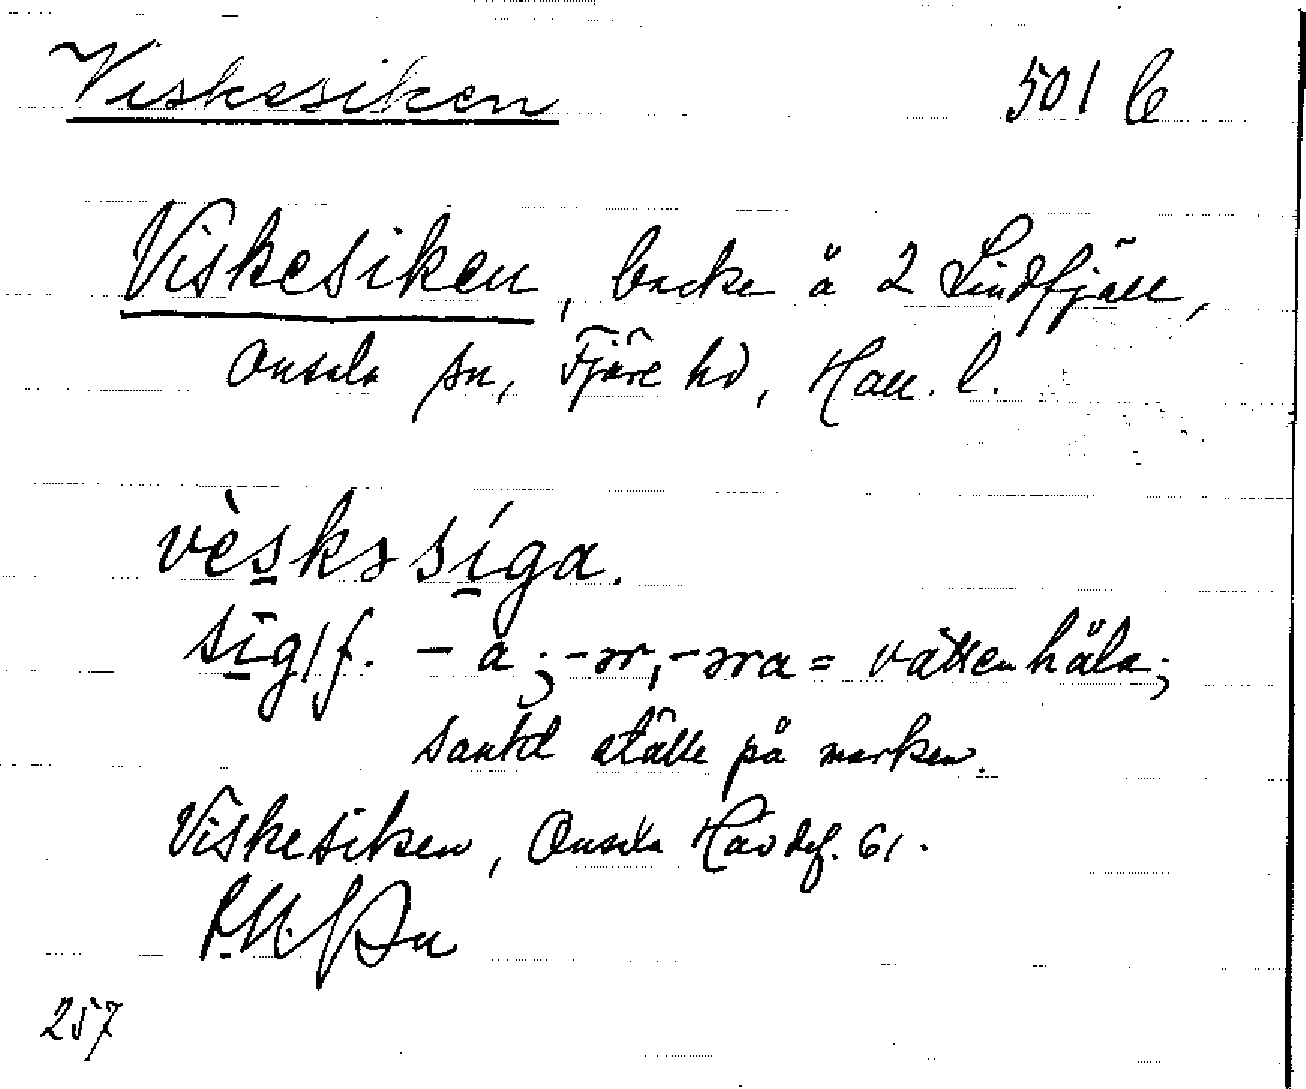 Viskesiken 501 b
Viskesiken, backe å 2 Lindfjäll,
Onsala sn, Fjäre hd, Hall. l.
vèskə síga.
sīg/f. – a; -ər, -əra = vattenhåla;
sankt ställe på marken.
Viskesiken, Onsala Havdef. 61.
257